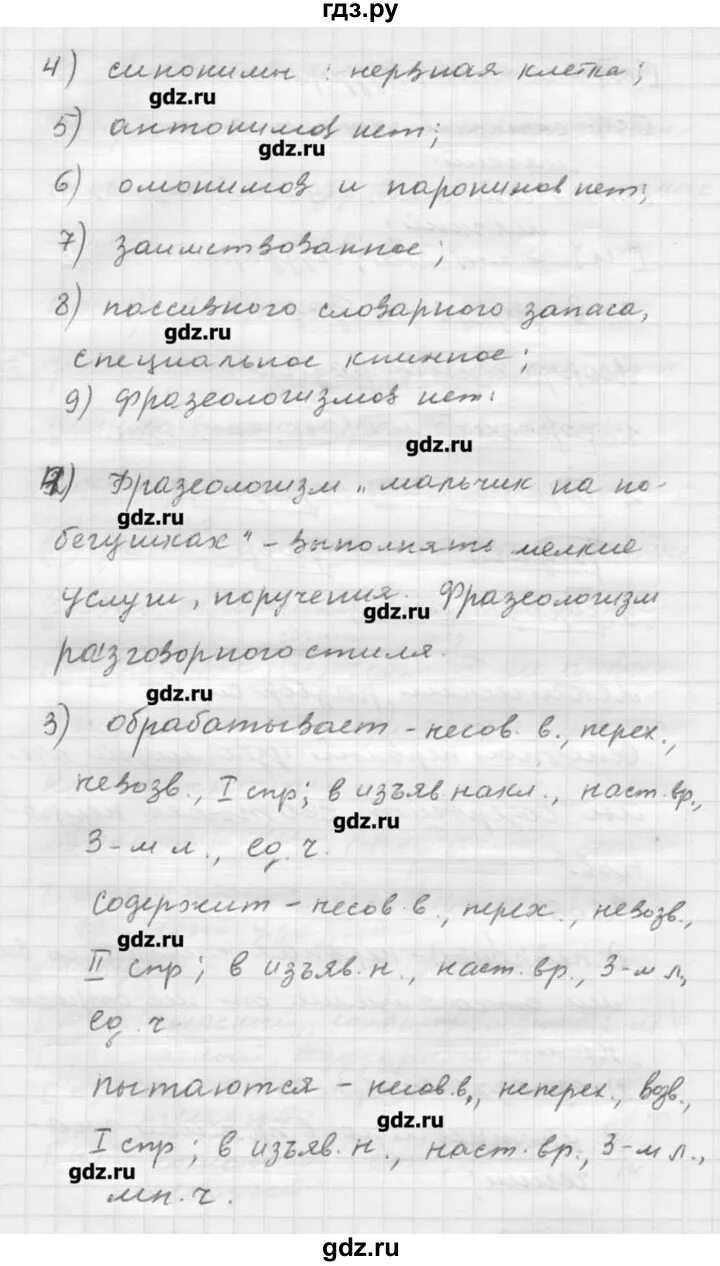 гдз.ру
4) синонимы : нервная клетка;
gdz.ru
5) антонимов нет;
gdz.ru
6) омонимов и паронимов нет;
7) заимствованное;
8) пассивного словарного запаса,
gdz.ru
специальное книжное;
9) фразеологизмов нет.
gdz.ru
2) Фразеологизм „мальчик на по-
gdz.ru
бегушках" – выполнять мелкие
услуги, поручения. Фразеологизм
gdz.ru
разговорного стиля.
gdz.ru
3) обрабатывает – несов. в., перех.,
невозв., I спр; в изъяв. накл., наст. вр.,
gdz.ru
3-м л., ед. ч.
содержит – несов. в., перех., невозв.,
gdz.ru
II спр; в изъяв. н., наст. вр., 3-м л.,
ед. ч
пытаются – несов. в., неперех., возв.,
gdz.ru
I спр; в изъяв. н., наст. вр., 3-м л.,
gdz.ru
мн. ч.
gdz.ru